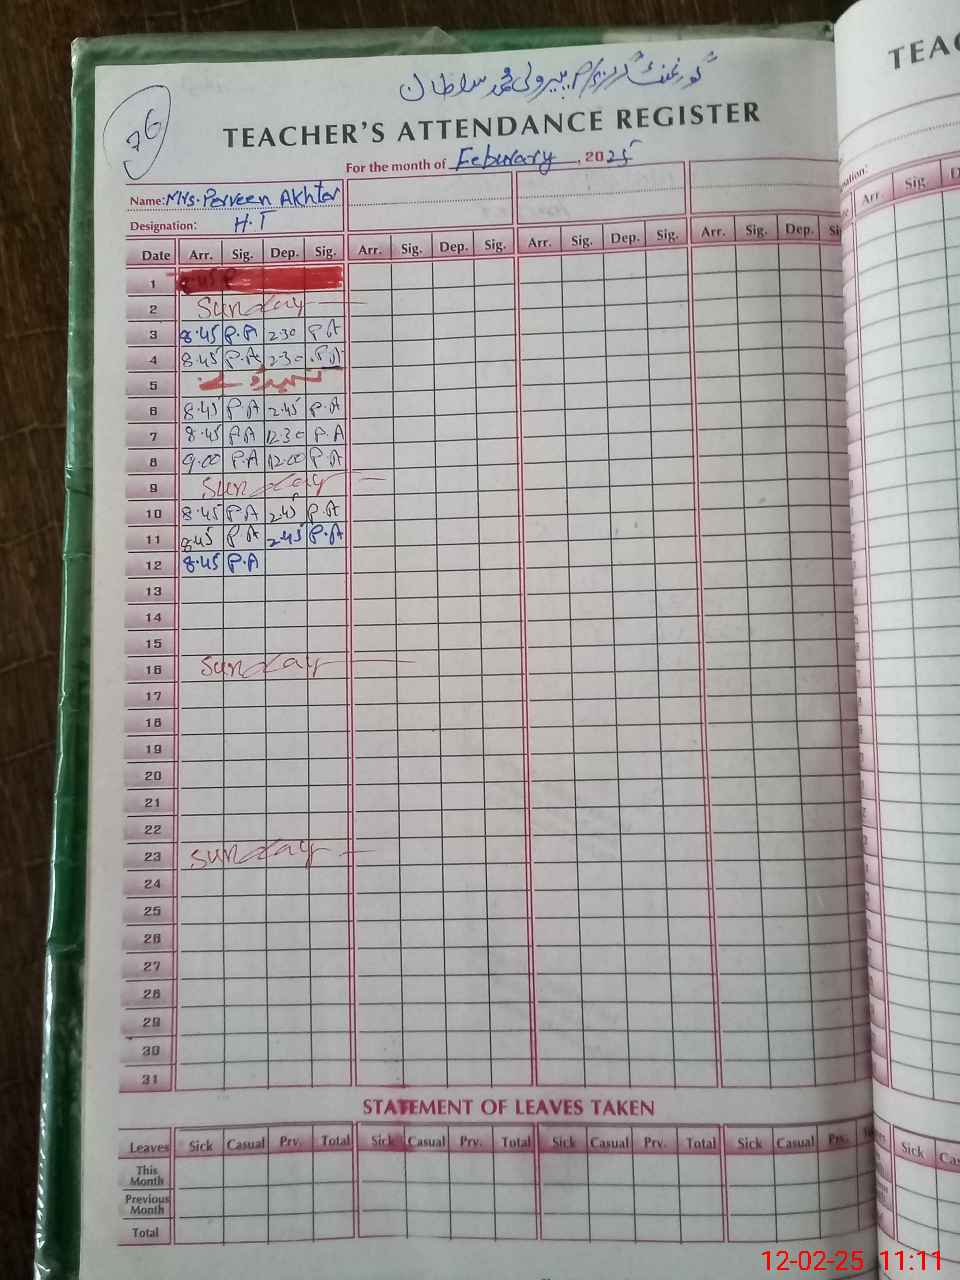 76
گورنمنٹ گرلز پیرولی محمد سلطان
TEACHER'S ATTENDANCE REGISTER
For the month of Feburary, 2025
Name: Mrs. Parveen Akhtar
Designation: H.T
Date Arr. Sig. Dep. Sig. Arr. Sig. Dep. Sig. Arr. Sig. Dep. Sig. Arr. Sig. Dep.
1 8.45 P
2 Sunday
3 8.45 P.A 2.30 P.A
4 8.45 P.A 2.30 P.A
5
6 8.45 P.A 2.45 P.A
7 8.45 P.A 12.30 P.A
8 9.00 P.A 12.00 P.A
9 Sunday
10 8.45 P.A 2.45 P.A
11 8.45 P.A 2.45 P.A
12 8.45 P.A
13
14
15
16 Sunday
17
18
19
20
21
22
23 Sunday
24
25
26
27
28
29
30
31
STATEMENT OF LEAVES TAKEN
Leaves Sick Casual Prv. Total Sick Casual Prv. Total Sick Casual Prv. Total Sick Casual Prv.
This Month
Previous Month
Total
TEAC
Arr. Sig. D
Sick Cas
12-02-25 11:11